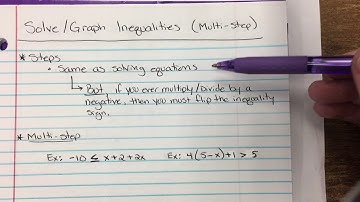 Solve/Graph Inequalities (Multi-Step)
* Steps
• Same as solving equations
↳ But, if you ever multiply/divide by a
negative, then you must flip the inequality
sign.
* Multi-step
Ex: -10 ≤ x+2+2x    Ex: 4(5-x)+1 > 5